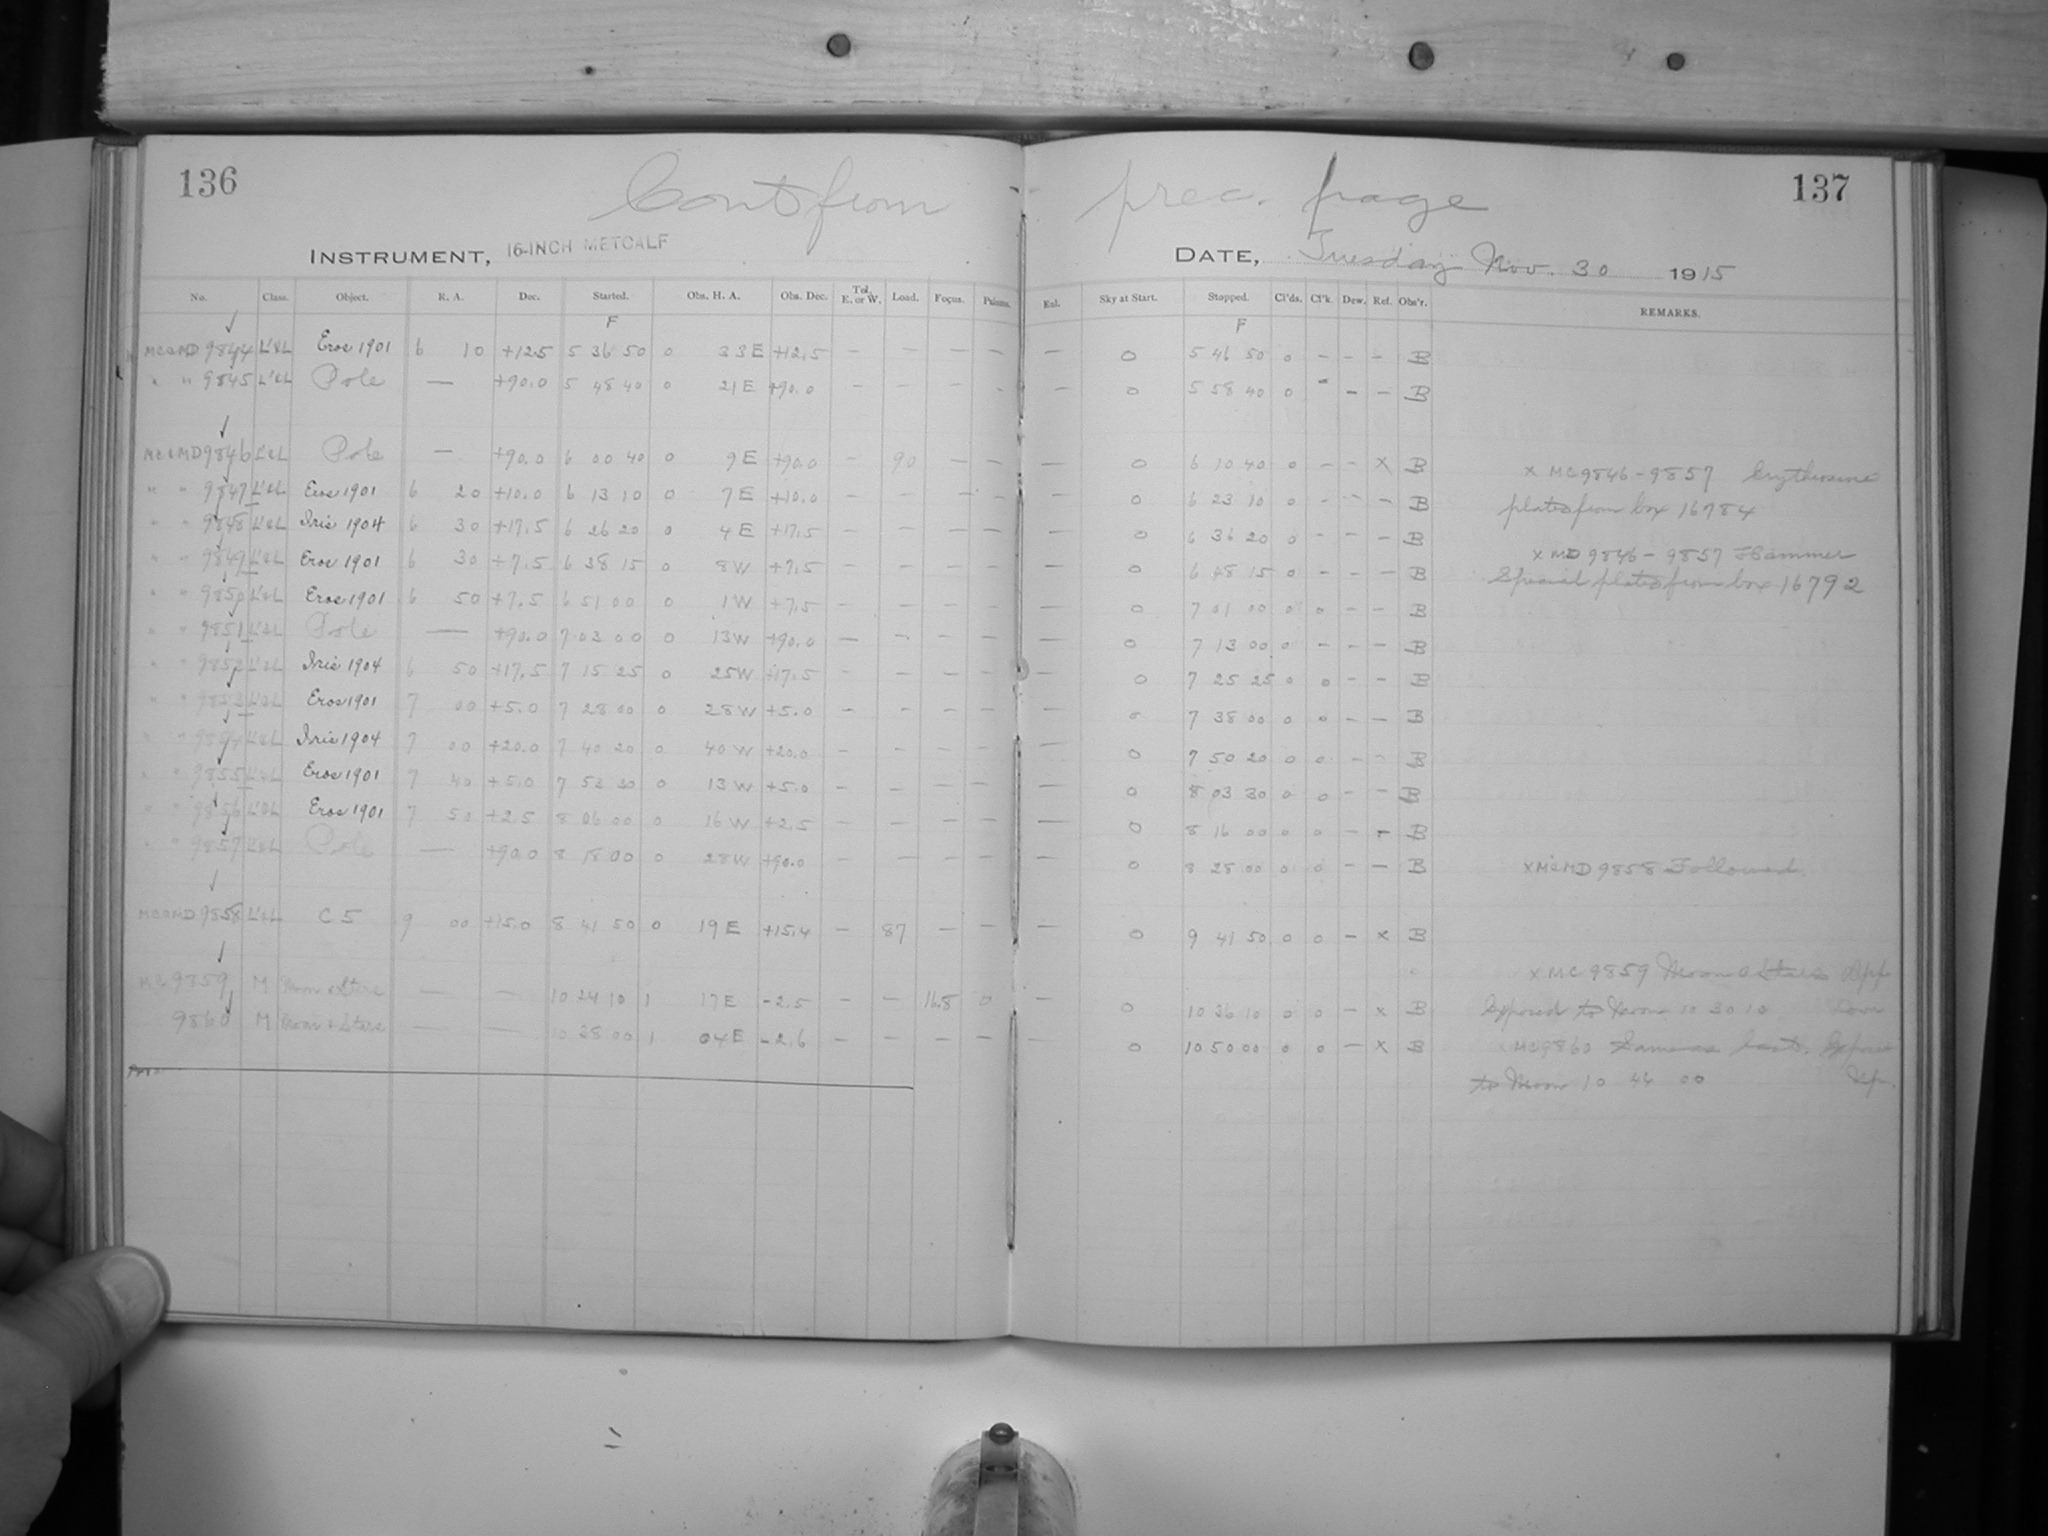 136
137
Cont from prec. page
INSTRUMENT, 16-INCH METCALF
DATE, Tuesday Nov. 30 1915
No. Class. Object. R. A. Dec. Started. Obs. H. A. Obs. Dec. Tel. E. or W. Load. Focus. Prisms. Enl. Sky at Start. Stopped. Cl'ds. Cl'k. Dew. Ref. Obs'r. REMARKS.
F F
MC&MD 9844 L'&L Eros 1901 6 10 +12.5 5 36 50 0 33E +12.5 — — — — — 0 5 46 50 0 — — — B
" " 9845 L'&L Pole — +90.0 5 48 40 0 21E +90.0 — — — — — 0 5 58 40 0 - — — B
MC&MD 9846 L'&L Pole — +90.0 6 00 40 0 9E +90.0 — 90 — — — 0 6 10 40 0 — — X B X MC9846-9857 Erythrosine
" " 9847 L'&L Eros 1901 6 20 +10.0 6 13 10 0 7E +10.0 — — — — — 0 6 23 10 0 — — — B plates from box 16784
" " 9848 L'&L Iris 1904 6 30 +17.5 6 26 20 0 4E +17.5 — — — — — 0 6 36 20 0 — — — B
" " 9849 L'&L Eros 1901 6 30 +7.5 6 38 15 0 8W +7.5 — — — — — 0 6 48 15 0 — — — B X MD 9846-9857 Hammer
Special plates from box 16792
" " 9850 L'&L Eros 1901 6 50 +7.5 6 51 00 0 1W +7.5 — — — — — 0 7 01 00 0 0 — — B
" " 9851 L'&L Pole — +90.0 7 03 00 0 13W +90.0 — — — — — 0 7 13 00 0 — — — B
" " 9852 L'&L Iris 1904 6 50 +17.5 7 15 25 0 25W +17.5 — — — — — 0 7 25 25 0 0 — — B
" " 9853 L'&L Eros 1901 7 00 +5.0 7 28 00 0 28W +5.0 — — — — — 0 7 38 00 0 0 — — B
" " 9854 L'&L Iris 1904 7 00 +20.0 7 40 20 0 40W +20.0 — — — — — 0 7 50 20 0 0 — — B
" " 9855 L'&L Eros 1901 7 40 +5.0 7 53 30 0 13W +5.0 — — — — — 0 8 03 30 0 0 — — B
" " 9856 L'&L Eros 1901 7 50 +2.5 8 06 00 0 16W +2.5 — — — — — 0 8 16 00 0 0 — — B
" " 9857 L'&L Pole — +90.0 8 18 00 0 28W +90.0 — — — — — 0 8 28 00 0 0 — — B X MC&MD 9858 Followed.
MC&MD 9858 L'&L C5 9 00 +15.0 8 41 50 0 19E +15.4 — 87 — — — 0 9 41 50 0 0 — X B
X MC 9859 Moon & Stars
MC 9859 M Moon & Stars — — 10 24 10 1 17E -2.5 — — 16.8 0 — 0 10 36 10 0 0 — X B Exposed to Moon 10 30 10
9860 M Moon & Stars — — 10 38 00 1 04E -2.6 — — — — — 0 10 50 00 0 0 — X B MC9860 Same as last.
to Moon 10 44 00